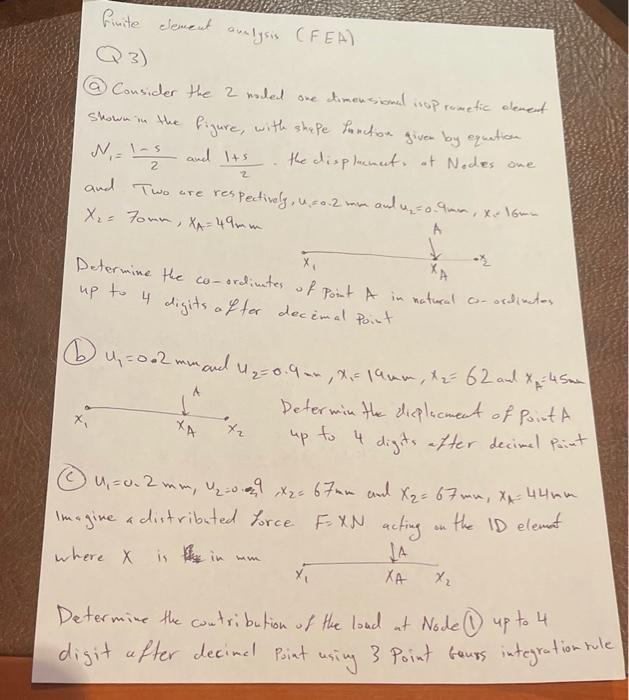 finite element analysis (FEA)
Q3)
(a) Consider the 2 noded one dimensional isoprametic element
shown in the figure, with shape function given by equation
N₁ = 1-s/2 and 1+s/2. the displacments at Nodes one
and Two are respectively, u₁=0.2 mm and u₂=0.9mm, x₁=16mm
X₂= 70mm, X_A=49mm
A
x₁ X_A x₂
Determine the co-ordinates of Point A in natural co-ordinates
up to 4 digits after decimal Point
(b) u₁=0.2mm and u₂=0.9mm, x₁=19mm, x₂= 62 and x_A=45mm
A
x₁ X_A X₂
Determin the displacment of Point A
up to 4 digits after decimal Point
(c) u₁=0.2mm, u₂=0.9, x₂= 67mm and X₂= 67mm, X_A=44mm
Imagine a distributed force F= XN acting on the 1D elemet
where X is in mm
A
X₁ XA X₂
Determine the contribution of the load at Node (1) up to 4
digit after decimel Point using 3 Point Gauss integration rule